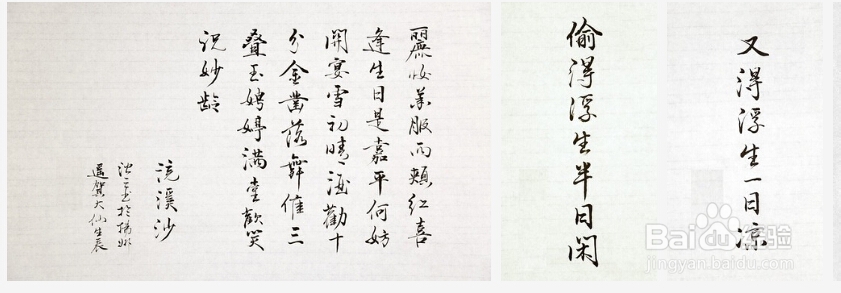 麗妝服兩頰紅喜
逢生日是嘉平何妨
開宴雪初晴酒勸十
分金凿落舞催三
疊玉娉婷满堂歡笑
祝妙龄
浣溪沙
於揚州
遥賀大仙生辰
偷得浮生半日閑
又得浮生一日凉
Bai du 经验
jingyan.baidu.com